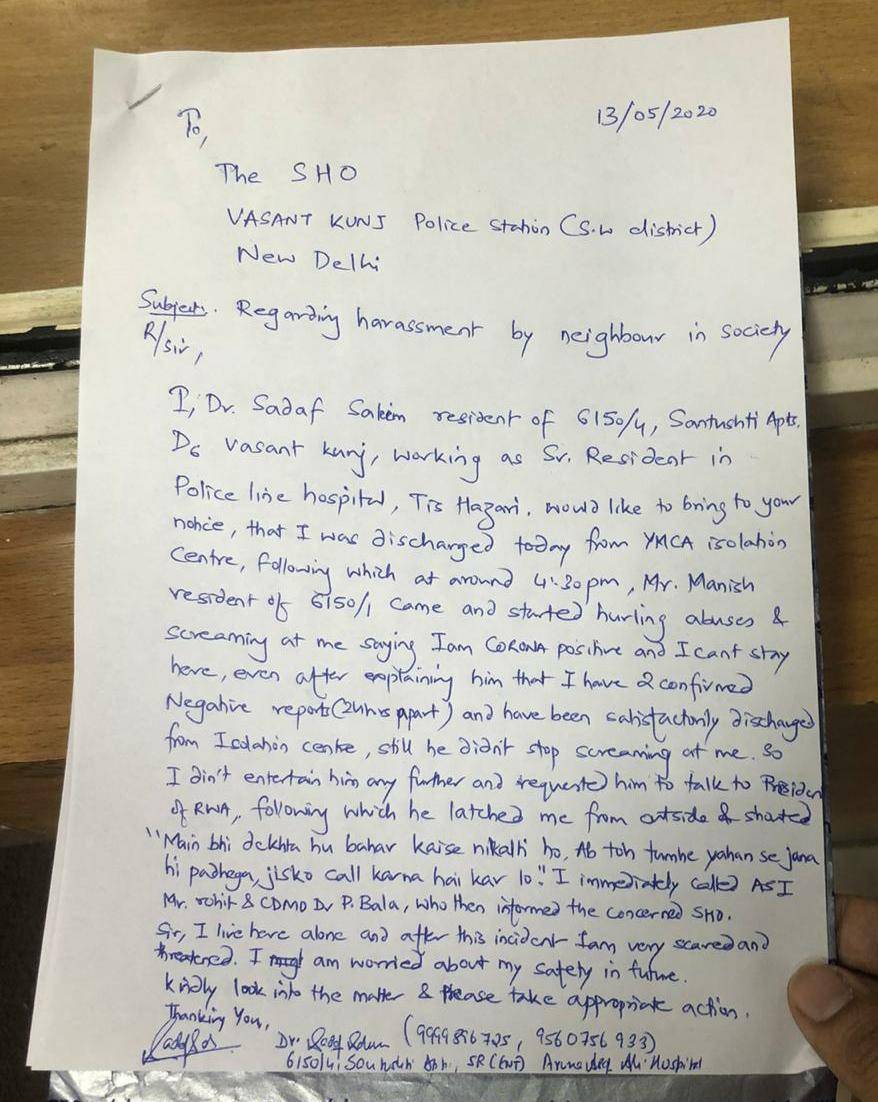 To,
13/05/2020
The SHO
VASANT KUNJ Police Station (S.W district)
New Delhi
Subject:. Regarding harassment by neighbour in society
R/Sir,
I, Dr. Sadaf Saleem resident of 6150/4, Santushti Apts.
D6 Vasant kunj, working as Sr. Resident in
Police line hospital, Tis Hazari. would like to bring to your
notice, that I was discharged today from YMCA isolation
Centre, following which at around 4:30pm, Mr. Manish
resident of 6150/1 came and started hurling abuses &
screaming at me saying I am CORONA positive and I cant stay
here, even after explaining him that I have 2 confirmed
Negative reports (24hrs apart) and have been satisfactorily discharged
from Isolation centre, still he didn't stop screaming at me. So
I din't entertain him any further and requested him to talk to Presiden
of RWA, following which he latched me from outside & shouted
"Main bhi dekhta hu bahar kaise nikalti ho, Ab toh tumhe yahan se jana
hi padhega, jisko call karna hai kar lo." I immediately called ASI
Mr. rohit & CDMO Dr P. Bala, who then informed the concerned SHO.
Sir, I live here alone and after this incident I am very scared and
threatened. I am worried about my safety in future.
kindly look into the matter & Please take appropriate action.
Thanking You,
Dr. (9999896725, 9560756933)
6150/4, SR (ENT) Aruna Asaf Ali Hospital